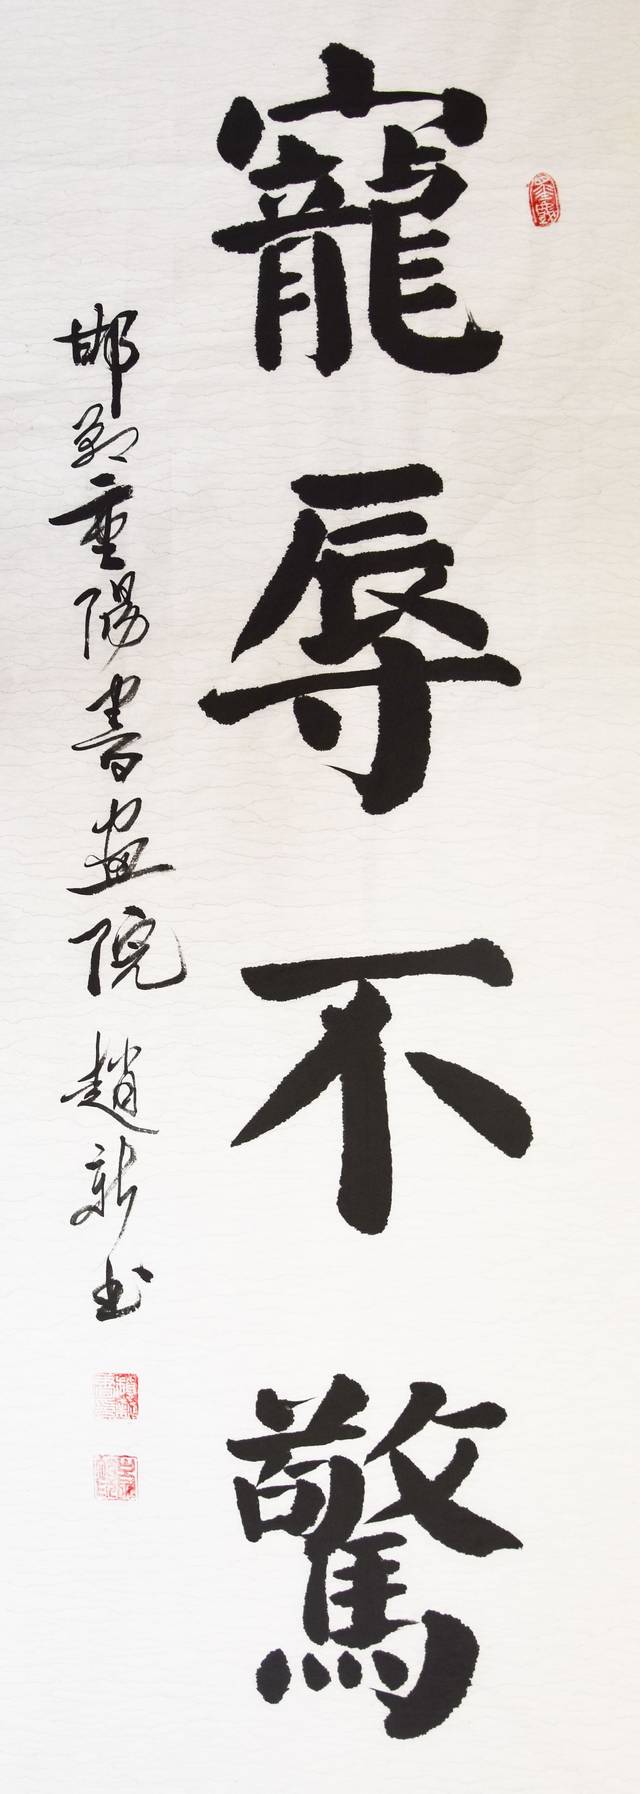 寵辱不驚
邯鄲重陽書畫院 趙新書